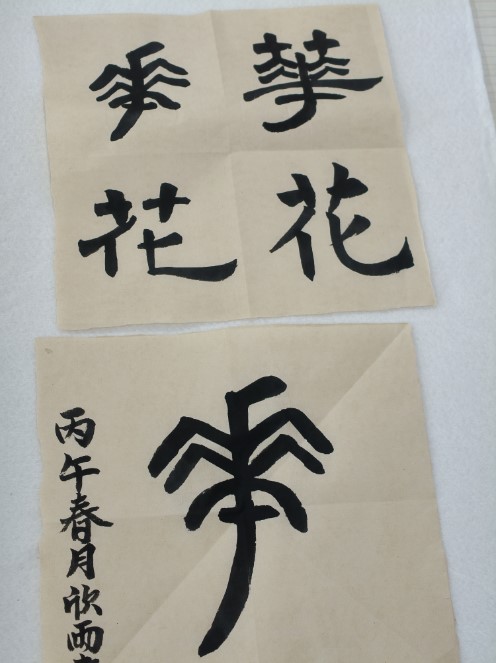 華 華
花 花
華
丙午春月欣雨